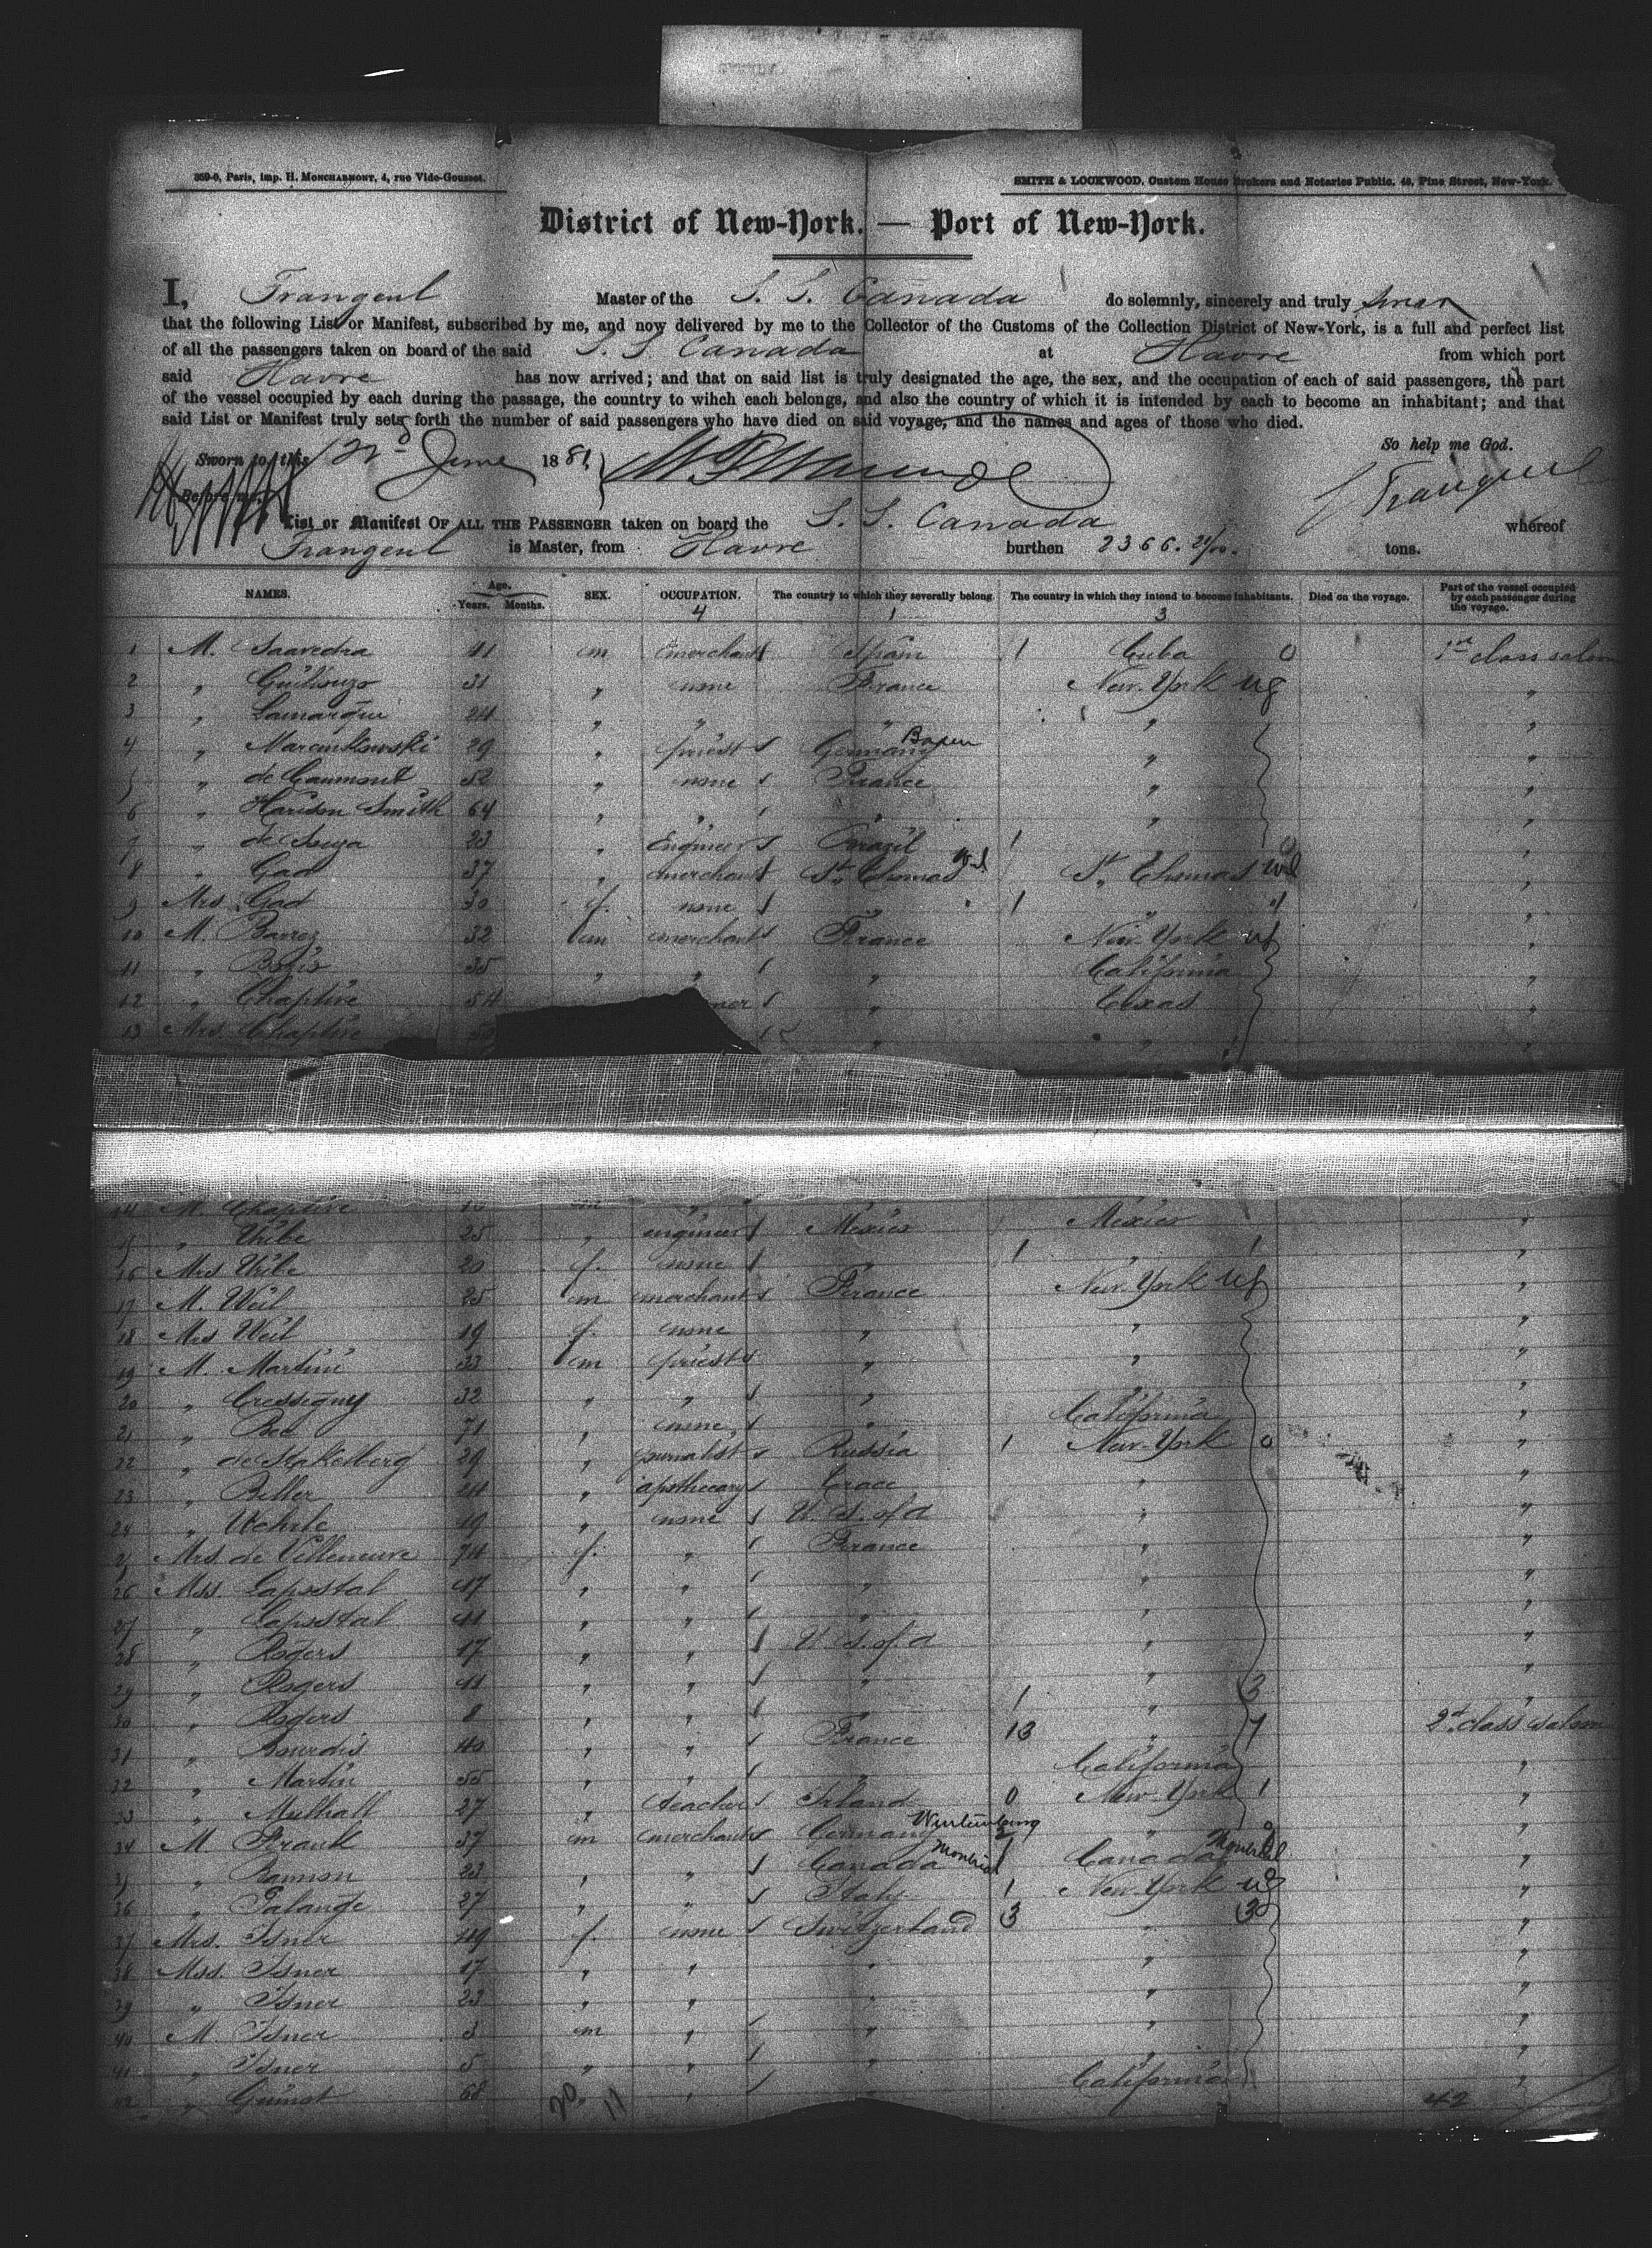 359-6, Paris, imp. H. MONCHARMONT, 4, rue Vide-Gousset.
SMITH & LOCKWOOD, Custom House Brokers and Notaries Public, 48, Pine Street, New-York.
District of New-York. — Port of New-York.
I, Frangeul Master of the S. S. Canada do solemnly, sincerely and truly swear
that the following List or Manifest, subscribed by me, and now delivered by me to the Collector of the Customs of the Collection District of New-York, is a full and perfect list
of all the passengers taken on board of the said S. S. Canada at Havre from which port
said Havre has now arrived; and that on said list is truly designated the age, the sex, and the occupation of each of said passengers, the part
of the vessel occupied by each during the passage, the country to wihch each belongs, and also the country of which it is intended by each to become an inhabitant; and that
said List or Manifest truly sets forth the number of said passengers who have died on said voyage, and the names and ages of those who died.
So help me God.
Sworn to this June 1881
Before me. Frangeul
List or Manifest OF ALL THE PASSENGER taken on board the S. S. Canada whereof
Frangeul is Master, from Havre burthen 2366. 21/100. tons.
NAMES. Age. Years. Months. SEX. OCCUPATION. The country to which they severally belong. The country in which they intend to become inhabitants. Died on the voyage. Part of the vessel occupied by each passenger during the voyage.
4 1 3
1 M. Saavedra 41 m merchant Spain 1 Cuba 0 1st class saloon
2 " 31 " none France New-York "
3 " Lamarque 24 " " " " "
4 " Marcinkowski 29 " priest Germany " "
5 " de Caumont 52 " none France " "
6 " Harison Smith 64 " " " " "
7 " de Souza 23 " Engineer Brazil 1 "
8 " Gad 37 " merchant St. Thomas St. Thomas "
9 Mrs. Gad 30 f. none " 1 " "
10 M. Barrez 32 m merchant France New-York "
11 " 35 " " " California "
12 " Chaptive 54 " Texas "
13 Mrs. Chaptive " " "
14 M. Chaptive m "
15 " Uribe 25 " engineer Mexico Mexico "
16 Mrs Uribe 20 f. none " 1 " 1 "
17 M. Weil 25 m merchant France New-York "
18 Mrs Weil 19 f. none " " "
19 M. Martini 33 m priest " " "
20 " Cressigny 32 " " " " "
21 " Bee 71 " none " California "
22 " de Stakelberg 29 " journalist Russia 1 New-York 0 "
23 " Beller 24 " apothecary " "
24 " Wehrle 19 " none U. S. of A " "
25 Mrs. de Villeneuve 74 f. " France " "
26 Mss. Lapostal 47 " " " " "
27 " Lapostal 41 " " " " "
28 " Rogers 17 " " U. S. of A " "
29 " Rogers 11 " " " " 3 "
30 " Rogers 8 " " " 1 " "
31 " Bourdis 40 " " France 13 " 7 2d class saloon
32 " Martin 55 " " " California "
33 " Mulhall 27 " teacher Irland 0 New-York 1 "
34 M. Frank 37 m merchant Germany Wurtemberg " "
35 " Bannon 23 " " Canada Montreal 1 Canada Montreal "
36 " Palange 27 " " Italy 1 New-York "
37 Mrs. Isner 49 f. none Switzerland 3 " 3 "
38 Mss. Isner 17 " " " " "
39 " Isner 23 " " " " "
40 M. Isner 3 m " " " "
41 " Isner 5 " " " " "
42 " Guinot 68 " " California "
20 11 42